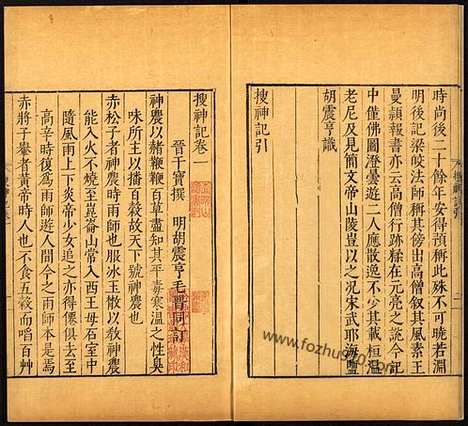 時尚後二十餘年安得預稱此殊不可曉若淵
明後記梁皎法師稱其傍出高僧叙其風素王
曼頴報書亦云高僧行跡糅在元亮之說今記
中僅佛圖澄曇遊二人應散逸不少其載桓温
老尼及見簡文帝山陵豈以之况宋武耶海鹽
胡震亨識
搜神記引
搜神記卷一
晉干寶撰 明胡震亨毛晉同訂
神農以赭鞭鞭百草盡知其平毒寒温之性臭
味所主以播百穀故天下號神農也
赤松子者神農時雨師也服冰玉散以教神農
能入火不燒至崑崙山常入西王母石室中
隨風雨上下炎帝少女追之亦得僊俱去至
高辛時復爲雨師遊人間今之雨師本是焉
赤將子轝者黃帝時人也不食五穀而啗百艸
www.fozhu920.com